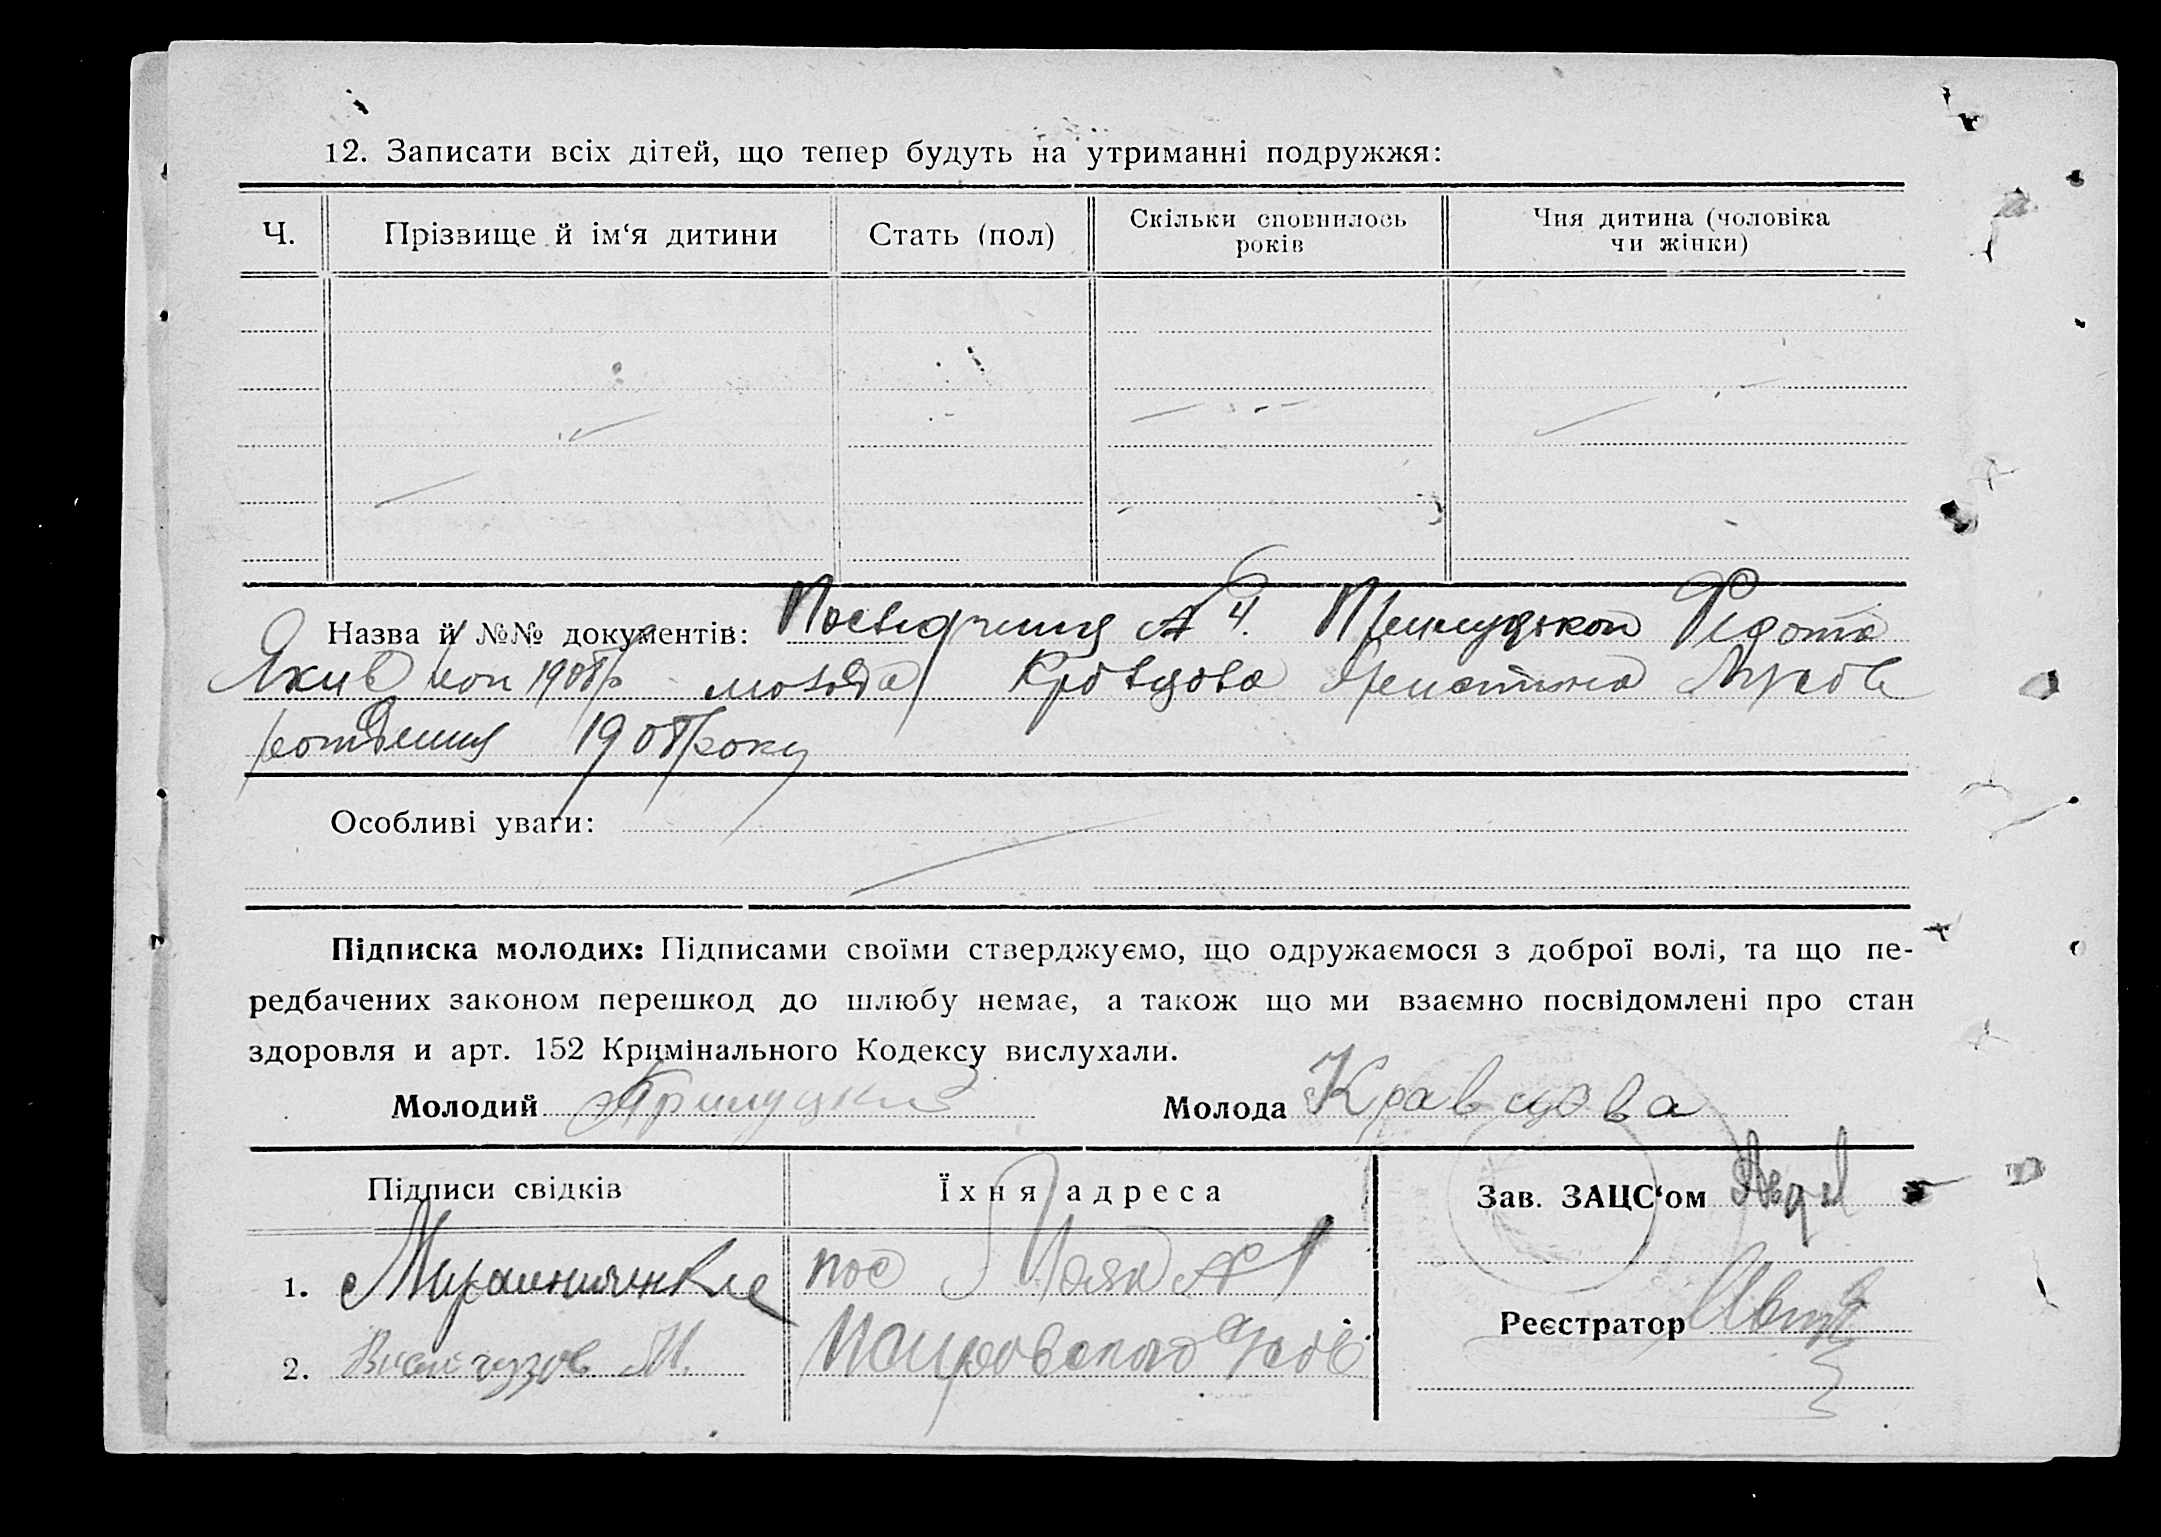 12. Записати всіх дітей, що тепер будуть на утриманні подружжя:
Ч.
Прізвище й ім‘я дитини
Стать (пол)
Скільки сповнилось
років
Чия дитина (чоловіка
чи жінки)
Назва й №№ документів: 4. Прилуцькой Федота
Якив 1908 р молода Кровцова Луков
1908 року
Особливі уваги:
Підписка молодих: Підписами своїми стверджуємо, що одружаємося з доброї волі, та що пе-
редбачених законом перешкод до шлюбу немає, а також що ми взаємно посвідомлені про стан
здоровля и арт. 152 Кримінального Кодексу вислухали.
Молодий Прилуцкий Молода Кравцова
Підписи свідків
Їхня адреса
Зав. ЗАЦС‘ом
1. пос Маяк № 1
2. М.
Реєстратор